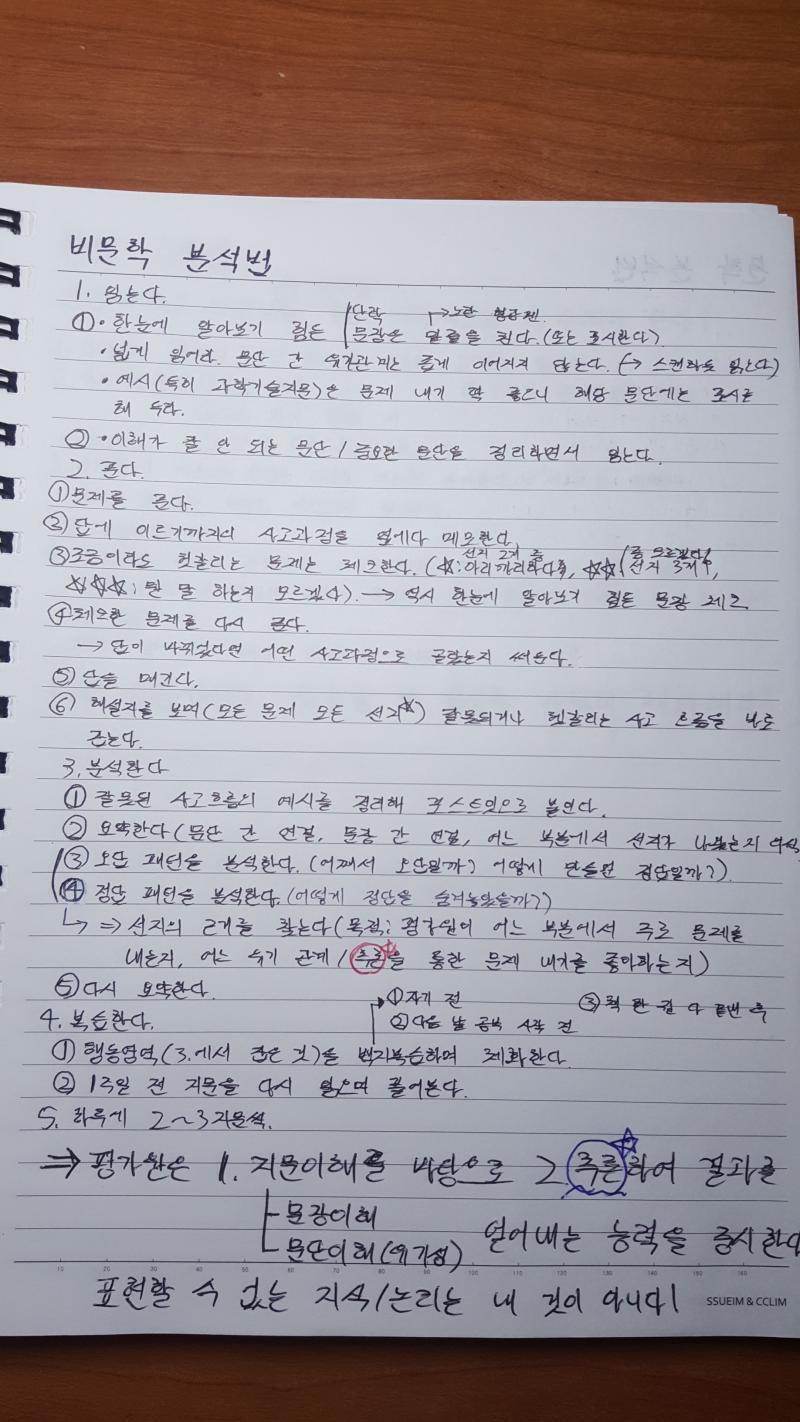 비문학 분석법
1. 읽는다.
단락 → 노란 형광펜
① · 한눈에 알아보기 힘든 문장은 밑줄을 친다. (또는 표시한다)
· 넓게 읽어라. 문단 간 유기관계는 좁게 이어지지 않는다. (→ 스캔하듯 읽는다)
· 예시(특히 과학기술지문)은 문제 내기 딱 좋으니 해당 문단에는 표시를
해 두라.
② · 이해가 잘 안 되는 문단 / 중요한 문단을 정리하면서 읽는다.
2. 푼다.
① 문제를 푼다.
② 답에 이르기까지의 사고과정을 옆에다 메모한다.
선지 2개 중 좀 모르겠다
③ 조금이라도 헷갈리는 문제는 체크한다. (☆: 아리까리하다, ☆☆ 선지 3개↑,
☆☆☆: 뭔 말 하는지 모르겠다). → 역시 한눈에 알아보기 힘든 문장 체크
④ 체크한 문제를 다시 푼다.
→ 답이 바뀌었다면 어떤 사고과정으로 골랐는지 써둔다.
⑤ 답을 매긴다.
⑥ 해설지를 보며 (모든 문제 모든 선지☆) 잘못되거나 헷갈리는 사고 흐름을 바로
잡는다.
3. 분석한다
① 잘못된 사고흐름의 예시를 정리해 포스트잇으로 붙인다.
② 요약한다 (문단 간 연결, 문장 간 연결, 어느 부분에서 선지가 나왔는지
③ 오답 패턴을 분석한다. (어째서 오답일까? 어떻게 만들면 정답일까?)
④ 정답 패턴을 분석한다. (어떻게 정답을 숨겨놓았을까?)
↳ ⇒ 선지의 근거를 찾는다 (목적: 평가원이 어느 부분에서 주로 문제를
내는지, 어느 유기 관계 / 추론☆을 통한 문제 내기를 좋아하는지)
⑤ 다시 요약한다.
① 자기 전 ③ 책 한 권 다 끝낸 후
4. 복습한다. ② 다음 날 공부 시작 전
① 행동영역 (3.에서 얻은 것)을 백지복습하며 체화한다.
② 1주일 전 지문을 다시 읽으며 풀어본다.
5. 하루에 2~3지문씩.
⇒ 평가원은 1. 지문이해를 바탕으로 2. 추론☆하여 결과를
문장이해 얻어내는 능력을 중시한다
문단이해 (유기성)
10 20 30 40 50 60 70 80 90 100 110 120 130 140 150 160
표현할 수 없는 지식/논리는 내 것이 아니다!
SSUEIM & CCLIM